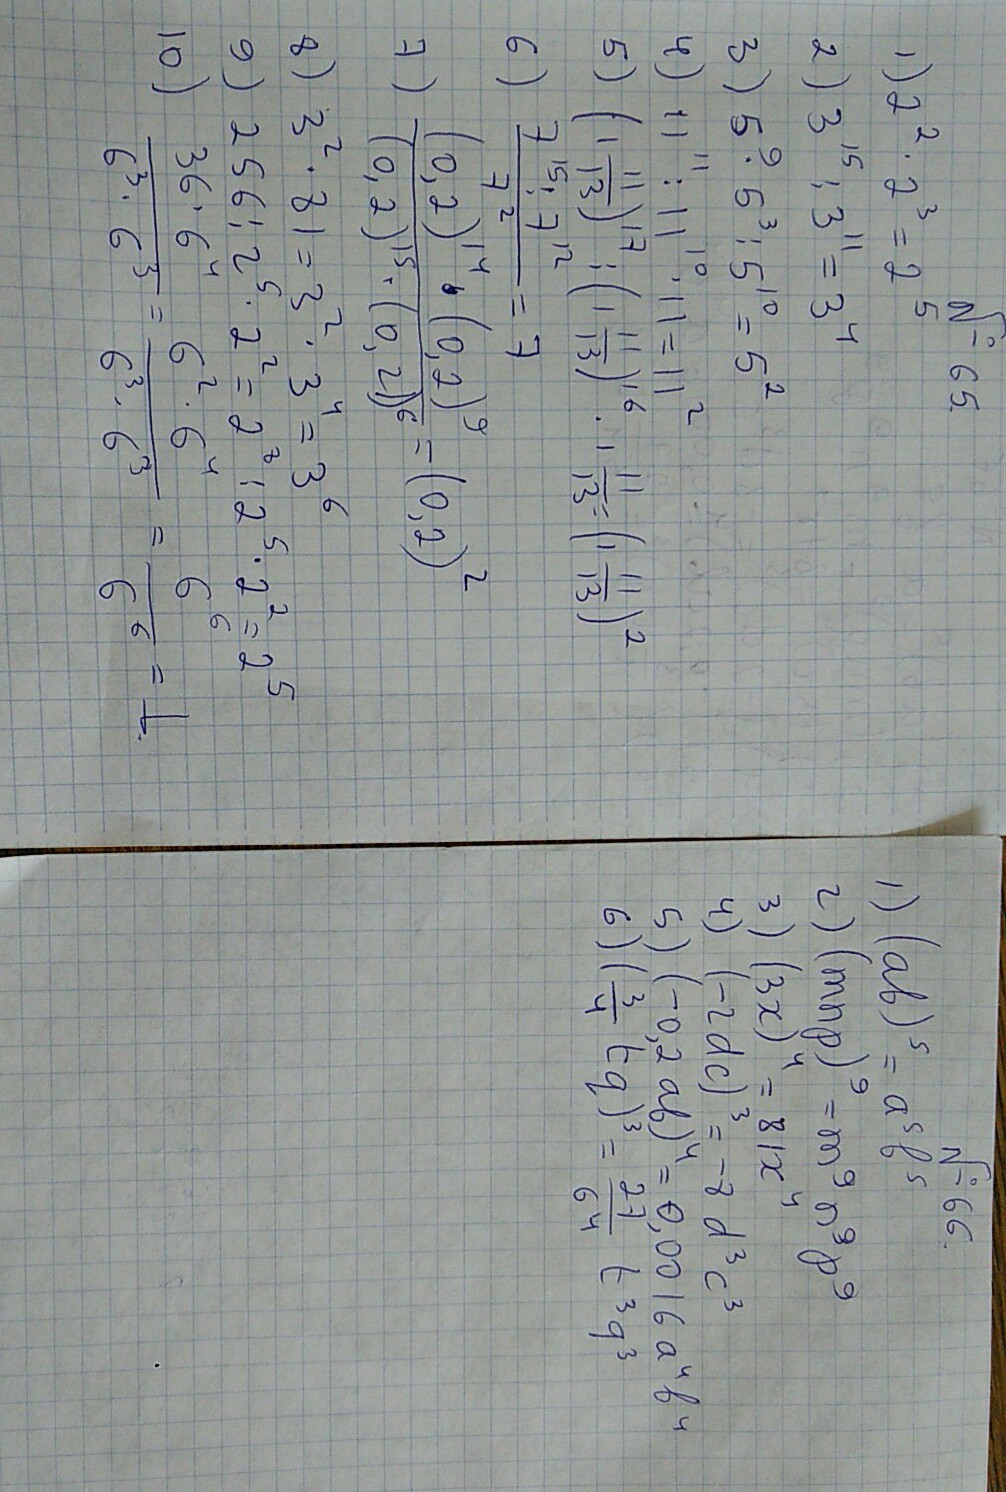 № 65.
1) 2² · 2³ = 2⁵
2) 3¹⁵ : 3¹¹ = 3⁴
3) 5⁹ · 5³ : 5¹⁰ = 5²
4) 11¹¹ : 11¹⁰ · 11 = 11²
5) (1 11/13)¹⁷ : (1 11/13)¹⁶ · 1 11/13 = (1 11/13)²
6) (7¹⁵ : 7¹²)/7² = 7
7) ((0,2)¹⁴ · (0,2)⁹)/((0,2)¹⁵ · (0,2)⁶) = (0,2)²
8) 3² · 81 = 3² · 3⁴ = 3⁶
9) 256 : 2⁵ · 2² = 2⁸ : 2⁵ · 2² = 2⁵
10) (36 · 6⁴)/(6³ · 6³) = (6² · 6⁴)/(6³ · 6³) = 6⁶/6⁶ = 1
№ 66.
1) (ab)⁵ = a⁵b⁵
2) (mnp)⁹ = m⁹n⁹p⁹
3) (3x)⁴ = 81x⁴
4) (-2dc)³ = -8d³c³
5) (-0,2ab)⁴ = 0,0016a⁴b⁴
6) (3/4 tq)³ = 27/64 t³q³